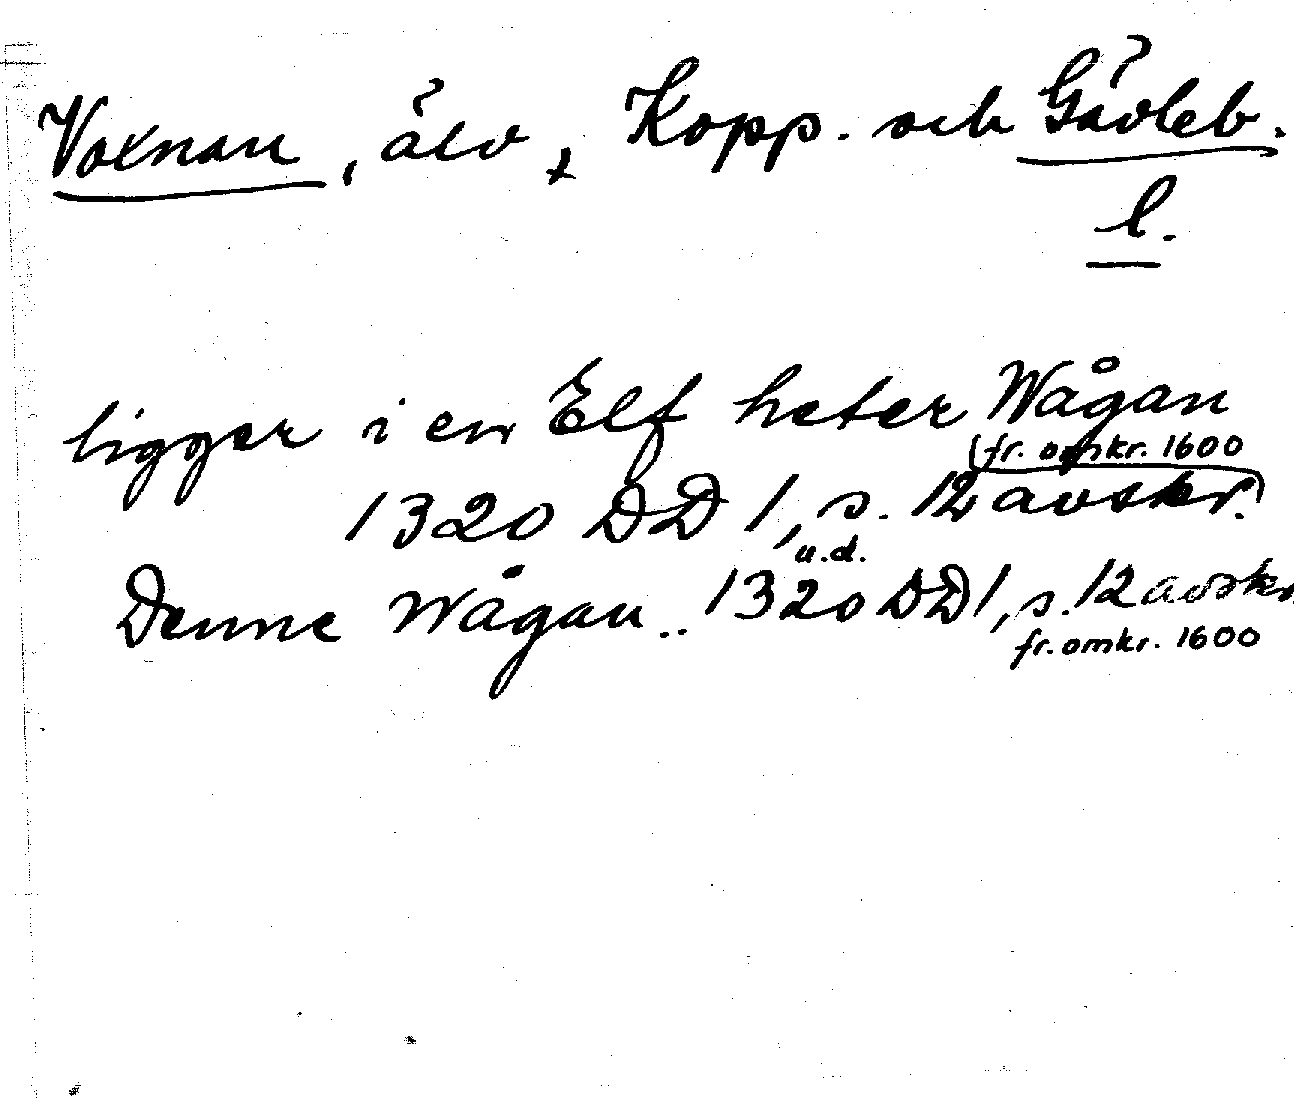 Voxnan, älv, Kopp. och Gävleb.
l.
ligger i en Elf heter Wågan
(fr. omkr. 1600
1320 DD 1, s. 12 avskr.)
u.d.
Denne Wågan.. 1320 DD 1, s. 12 avskr
fr. omkr. 1600